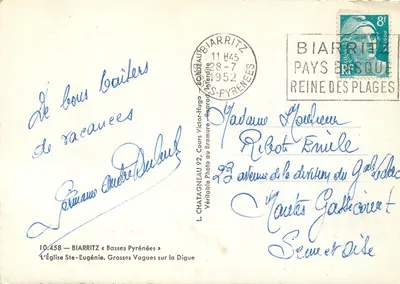 BIARRITZ
11H45
28-7
1952
BSES-PYRENEES
8F
RF
BIARRITZ
PAYS BASQUE
REINE DES PLAGES
De bons baisers
de vacances
Germaine André
Madame Monsieur
Ribot Emile
23 avenue de la division du Gal Leclerc
Mantes Gassicourt
Seine et Oise
L. CHATAGNEAU 92, Cours Victor-Hugo - BORDEAUX
Véritable Photo au Bromure - Reprod. interdite
10.458 — BIARRITZ « Basses Pyrénées »
L'Église Ste-Eugénie. Grosses Vagues sur la Digue